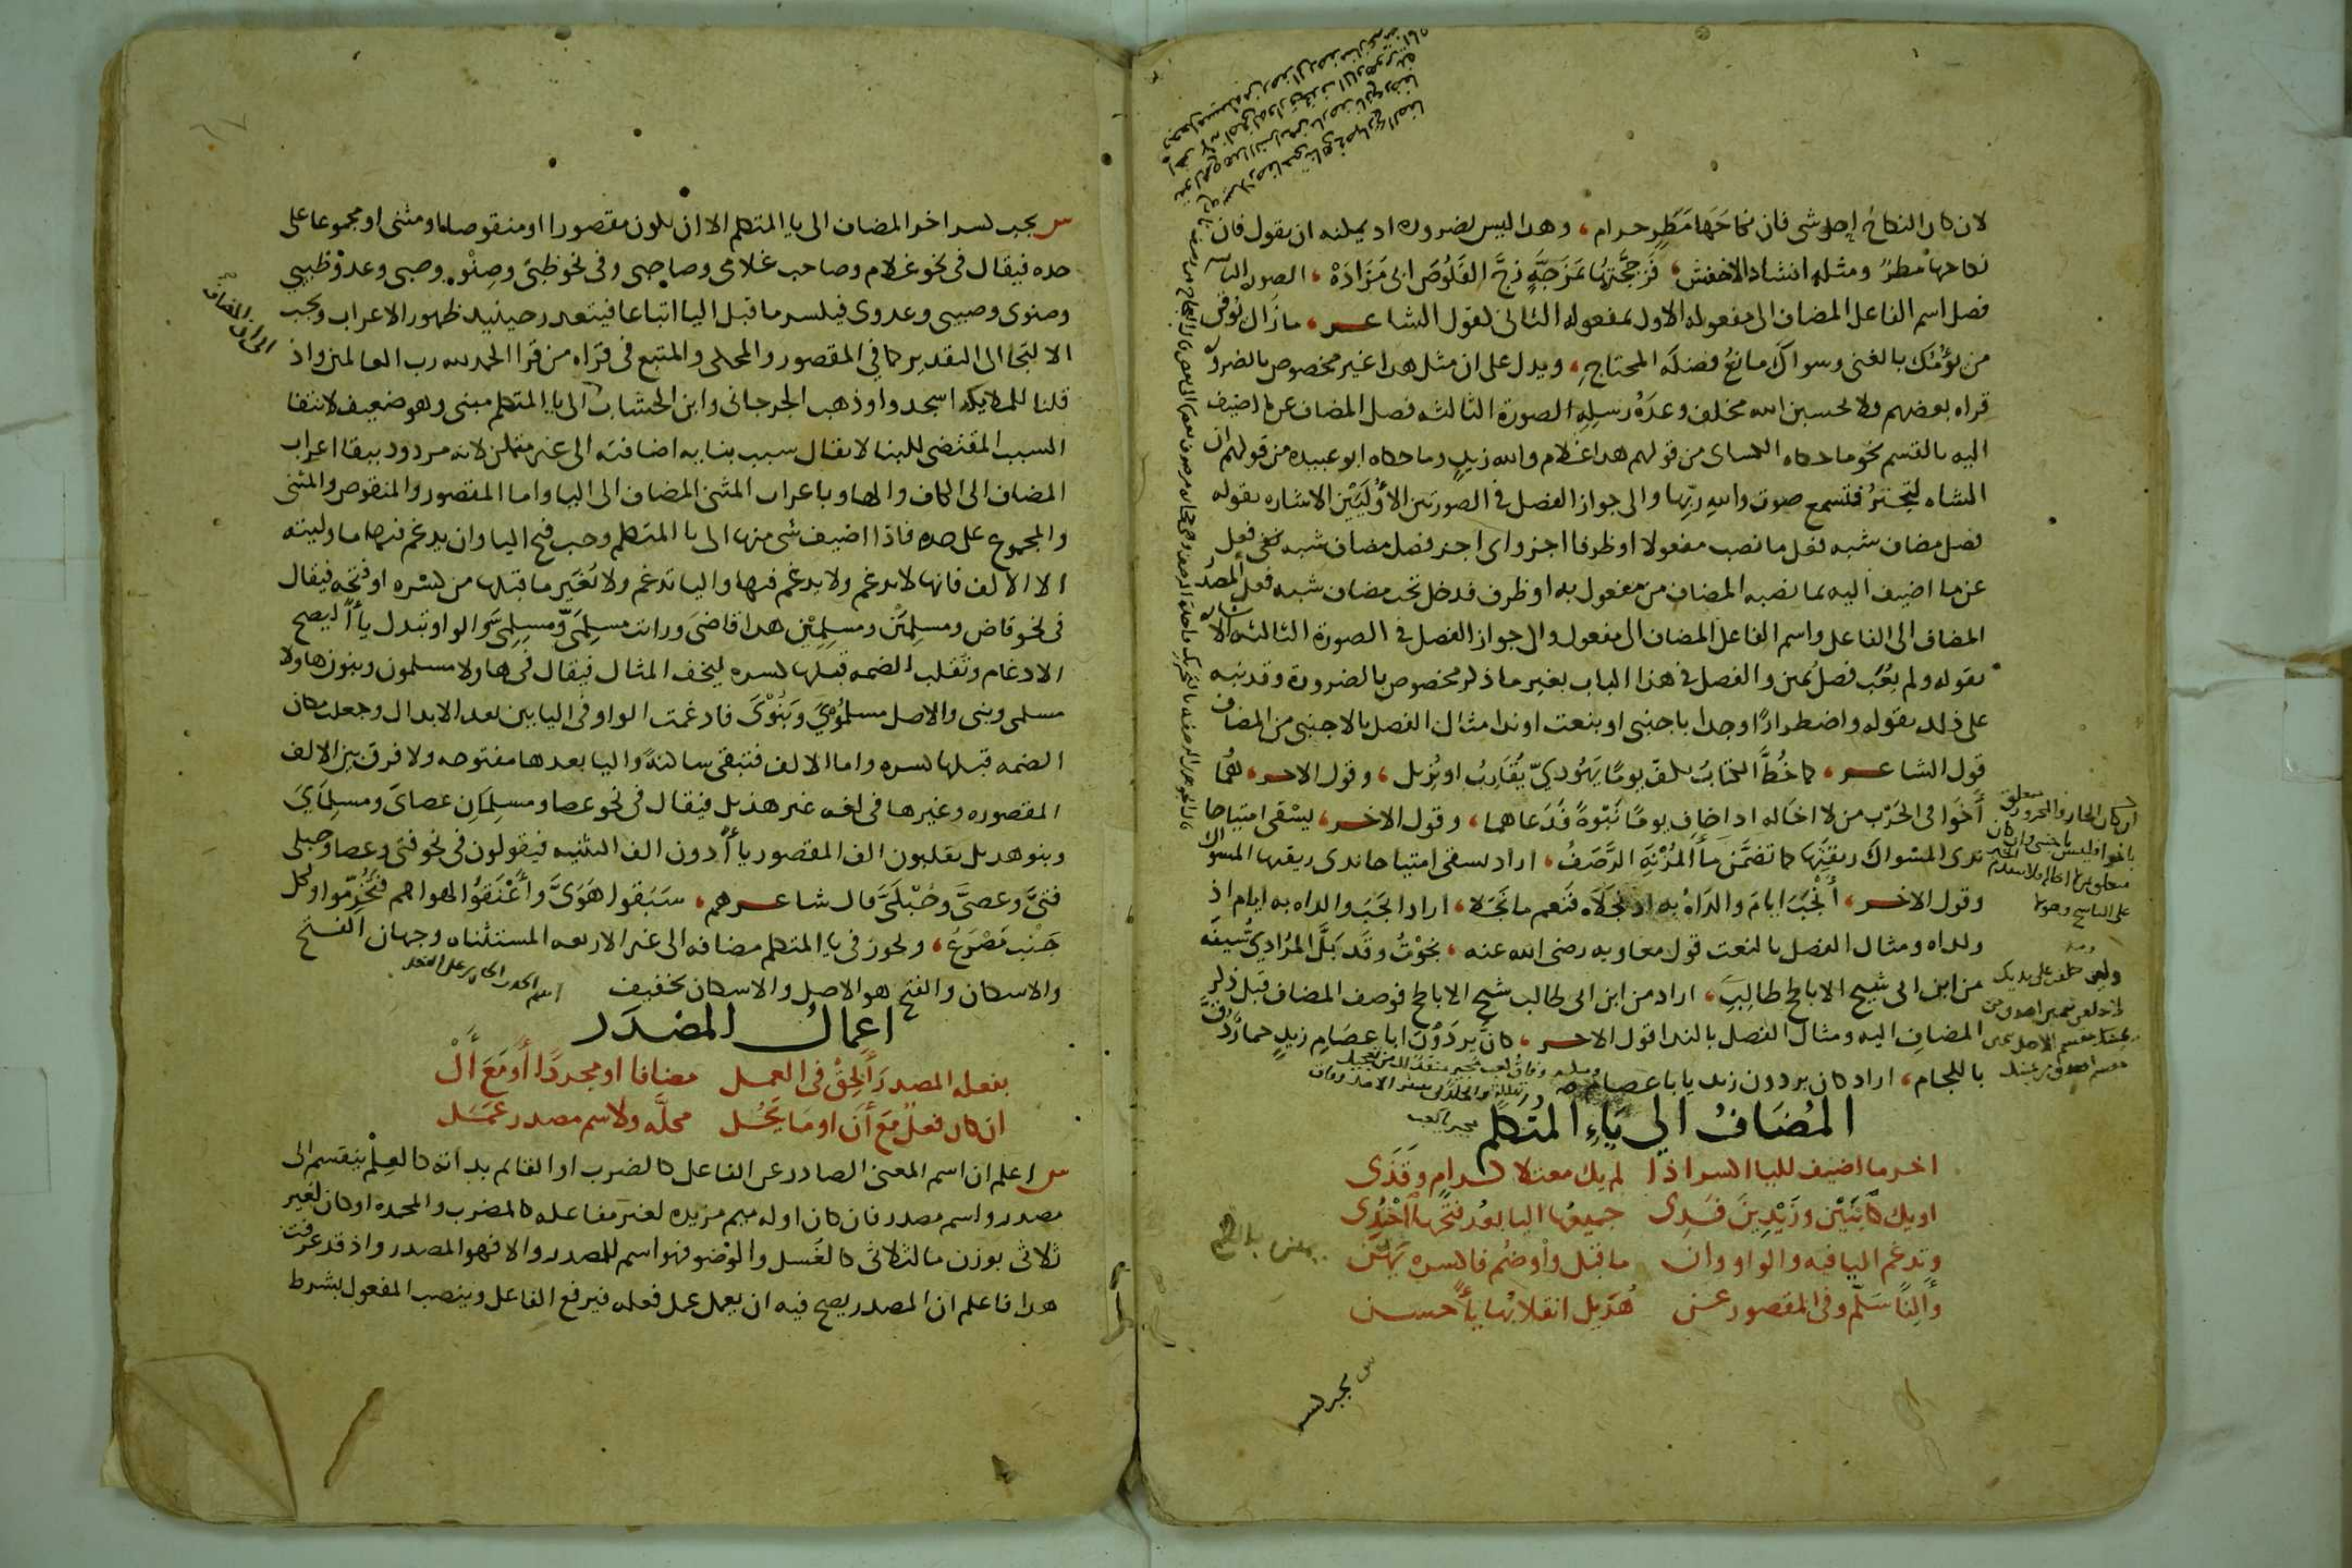 لان كان النكاح احل شي فان نكاحَها مَطَرٍ حرام، وهدا ليس لضروره اد يمكنه ان يقول فان
نكاحها مطرٌ ومثله انشاد الاخفش، فَزَجَجْتُها بمَزَجَّةٍ زجَّ القَلُوصَ ابى مَزَادَهْ، الصوره الثا
فصل اسم الفاعل المضاف الى مفعوله الاول بمفعوله الثانى لقول الشاعر، مازال يوقن
من يؤمّك بالغنى وسواك مانعُ فضلَه المحتاجِ، ويدل على ان مثل هدا غير مخصوص بالضرو
قراه بعضهم ولا تحسبن الله مخلف وعدَهُ رسلِهِ الصورة الثالثه فصل المضاف عن ما اضيف
اليه بالقسم نحو ما حكاه الكساى من قولهم هدا غلام والله زيدٍ وما حكاه ابو عبيده من قولهم ان
الشاه لتجترُ فتسمع صوت والله ربِّها والى جواز الفصل فى الصورتين الأُوليَيْن الاشاره بقوله
فصل مضاف شبه فعل ما نصب مفعولا او ظرفا اجز واى اجز فصل مضاف شبه فعل
عن ما اضيف اليه بما نصبه المضاف من مفعول به او ظرف فدخل تحت مضاف شبه فعل المصدر
المضاف الى الفاعل واسم الفاعل المضاف الى مفعول والى جواز الفصل فى الصورة الثالثه الا
بقوله ولم يُعَب فصل يمين والفصل فى هذا الباب بغير ما ذكر مخصوص بالضرورة وقد نبه
على ذلك بقوله واضطرارًا وجدا باجنبى او بنعت او ندا مثال الفصل بالاجنبى من المضاف
قول الشاعر، كما خُطَّ الكتابُ بكفِّ يومًا يَهُوديّ يُقَارِبُ او يُزيل، وقول الاخر، هُمَا
أَخَوَا فى الحَرْب من لا اخا له اد اخاف يومًا نَبْوةً فَدَعاهما، وقول الاخر، يسْقى امتياحا
ندى المسواك ريقتِها كما تضمَّن ماءَ المُزْنَةِ الرَّصَفُ، اراد يسقى امتياحا ندى ريقتها المسواك
وقول الاخر، أَنْجَبَ ايامَ والدَاهُ بِهِ اذ نجَلَاه فنَعم ما نَجَلا، اراد انجَبَ والداه به ايام اذ
ولداه ومثال الفصل بالنعت قول معاويه رضى الله عنه، نجَوْتُ وقَد بَلَّ المُرَادِيُّ سَيفَه
من ابن ابى شيخِ الاباطح طالبِ، اراد من ابن ابى طالب شيخ الاباطح فوصف المضاف قبل ذكر
المضاف اليه ومثال الفصل بالندا قول الاخر، كان بِردَوْنَ ابا عصَامِ زيدٍ حمارٌ دُقَّ
باللجام، اراد كان بردون زيد يا ابا عصام
المُضَافُ الى يَاءِ المُتكلم
اخر ما اضيف لليا اكسر اذا لم يك معتلا كرامٍ وقَذَى
او يك كابنَيْن وزَيْدِينَ فَذِى جميعُها اليا بعدُ فتحُها احْتُذِى
وتدغم اليا فيه والواو وان ما قبل واوٍ ضُم فاكسره يَهُنْ
وألفًا سَلّم وفى المقصور عن هُذَيلٍ انقلابُها ياءً حسن
س يجب كسر
س يجب كسر اخر المضاف الى يا المتكلم الا ان يكون مقصورا او منقوصا او مثنى او مجموعا على
حده فيقال فى نحو غلام وصاحب غلامى وصاحبى وفى نحو ظبىٍ وصِنْوٍ وصبى وعدوٍّ ظبيى
وصنوى وصبيى وعدوى فيكسر ما قبل اليا اتباعا فيتعدر حينيد ظهور الاعراب ويجب
الالتجا الى التقدير كما فى المقصور والمحكى والمتبع فى قراه من قرا الحمد لله رب العالمين واذ
قلنا للملايكه اسجدوا وذهب الجرجانى وابن الخشاب الى يا المتكلم مبنى وهو ضعيف لانتفا
السبب المقتضى للبنا لا يقال سبب بنايه اضافته الى غير متمكن لانه مردود ببقا اعراب
المضاف الى الكاف والها وباعراب المثنى المضاف الى اليا واما المقصور والمنقوص والمثنى
والمجموع على حده فاذا اضيف شى منها الى يا المتكلم وجب فتح اليا وان يدغم فيها ما وليته
الا الالف فانها لا تدغم ولا يدغم فيها واليا تدغم ولا يُغيَّر ما قبلها من كسره او فتحه فيقال
فى نحو قاض ومسلمَيْن ومسلمِيْن هدا قاضىَ ورايت مسلمَىَّ ومسلمِىَّ والواو تبدل ياءً ليصح
الادغام وتقلب الضمه قبلها كسره ليخف المثال فيقال فى هاولا مسلمون وبنون هاولا
مسلمى وبنى والاصل مسلمُوْىَ وبَنُوْىَ فادغمت الواو فى اليا بين بعد الابدال وجعل مكان
الضمه قبلها كسره واما الالف فتبقى ساكنةً واليا بعدها مفتوحه ولا فرق بين الالف
المقصوره وغيرها فى لغه غير هذيل فيقال فى نحو عصا ومسلمَانِ عصاىَ ومسلمَاىَ
وبنو هديل يقلبون الف المقصور ياءً دون الف التثنيه فيقولون فى نحو فتى وعصا وحبلى
فتىَّ وعصىَّ وحُبْلَىَّ قال شاعرهم، سَبَقوا هَوَىَّ وأَعْنَقُوا لهواهم فتُخُرِّموا ولكل
جَنْب مَصْرَعُ، ويجوز فى يا المتكلم مضافه الى غير الاربعه المستثناه وجهان الفتح
والاسكان والفتح هو الاصل والاسكان تخفيف
اعمالُ المصدَر
بفعله المصدرَ أَلحِقْ فى العمل مضافا او مجردًا أو مَعَ أَلْ
ان كان فعلٌ مَعَ أَن او مَا يَحُل محلَّه ولاسم مصدر عَمَل
س اعلم ان اسم المعنى الصادر عن الفاعل كالضرب او القائم بداته كالعِلْم ينقسم الى
مصدر واسم مصدر فان كان اوله ميم مزيده لغير مفاعله كالمضرب والمحمده او كان لغير
ثلاثى بوزن ما لثلاثى كالغُسل والوُضو فهو اسم للمصدر والا فهو المصدر واذ قد عرفت
هدا فاعلم ان المصدر يصح فيه ان يعمل عمل فعله فيرفع الفاعل وينصب المفعول بشرط